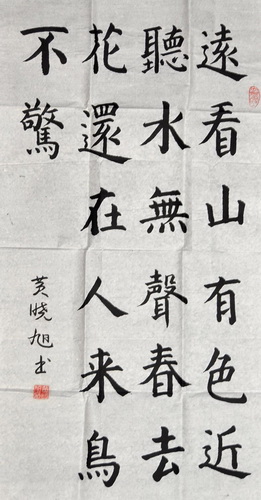 遠看山有色近
聽水無聲春去
花還在人来鳥
不驚
黄晓旭书